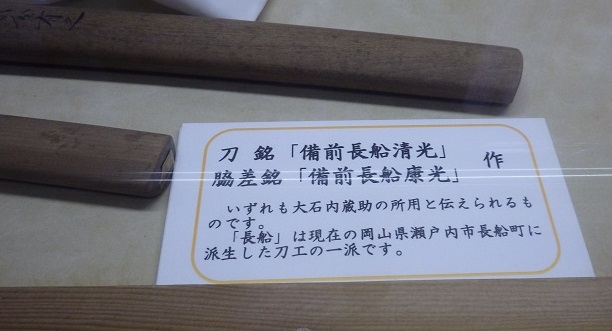 刀 銘「備前長船清光」
脇差銘「備前長船康光」 作
いずれも大石内蔵助の所用と伝えられるも
のです。
「長船」は現在の岡山県瀬戸内市長船町に
派生した刀工の一派です。